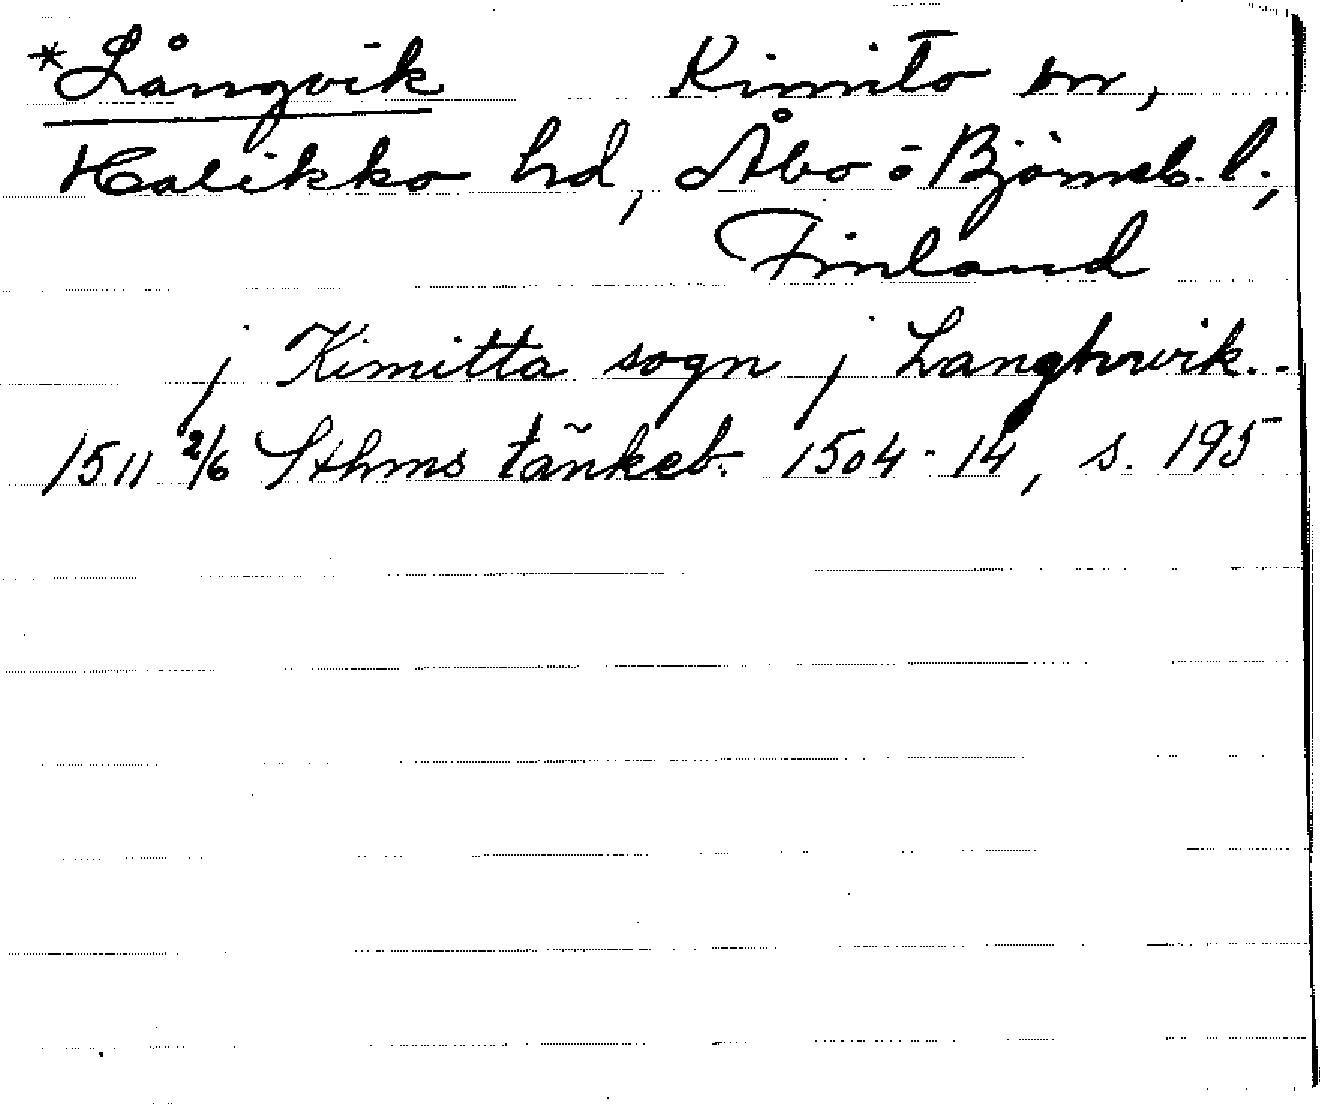 *Långvik Kimito sn,
Halikko hd, Åbo o Björneb. l.,
Finland
j Kimitta sogn j Langhwik..
1511 2/6 Sthms tänkeb. 1504-14, s. 195